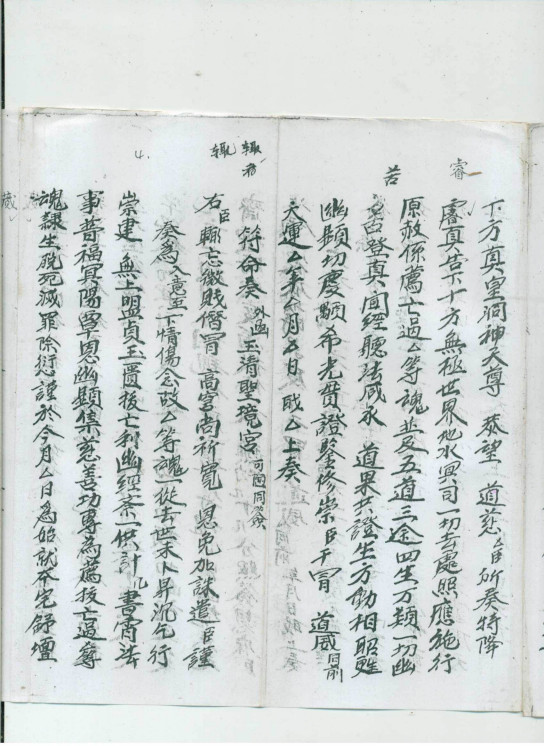 下方真皇洞神天尊 恭望 道慈 允臣所奏特降
睿
睿真告下十方無極世界地水冥司一切去處照應施行
原赦係薦亡過厶等魂並及五道三途四生万類一切幽
苦
登真聞經聽法咸承 道果共證生方動相昭甦
幽顯切慶顒希光賁證鑒修崇臣干冒 道威 同前
天運厶年厶月厶日 臣厶上奏
輙
符命奏 外函 玉清聖境宮 可國同簽
輙
右臣輙忘微賤僭冒 高穹尚祈寬 恩免加誅遣臣謹
奏為 入意至 下情傷念故厶等魂一從去世未卜昇沉乞行
4.
崇建 無上盟真玉匱拔亡利幽經斋一供計 几 書宵法
事普福冥陽覃恩幽顯集慈善功專為薦拔亡過等
魂隸生脱死滅罪除愆謹於今月厶日為始就在宅錚壇